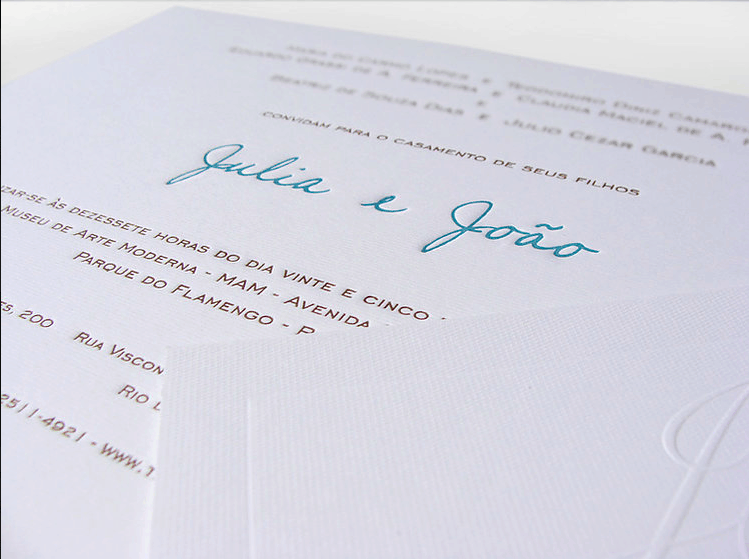 LOPES E TEODOMIRO DINIZ CAMARG
EDUARDO DE A. FERREIRA E CLAUDIA MACIEL DE A.
E
BEATRIZ DE SOUZA DIAS E JULIO CEZAR GARCIA
CONVIDAM PARA O CASAMENTO DE SEUS FILHOS
Julia e João
ZAR-SE ÀS DEZESSETE HORAS DO DIA VINTE E CINCO
MUSEU DE ARTE MODERNA - MAM - AVENIDA
PARQUE DO FLAMENGO - P
ES, 200 RUA VISCON
RIO D
2511-4921 - WWW.